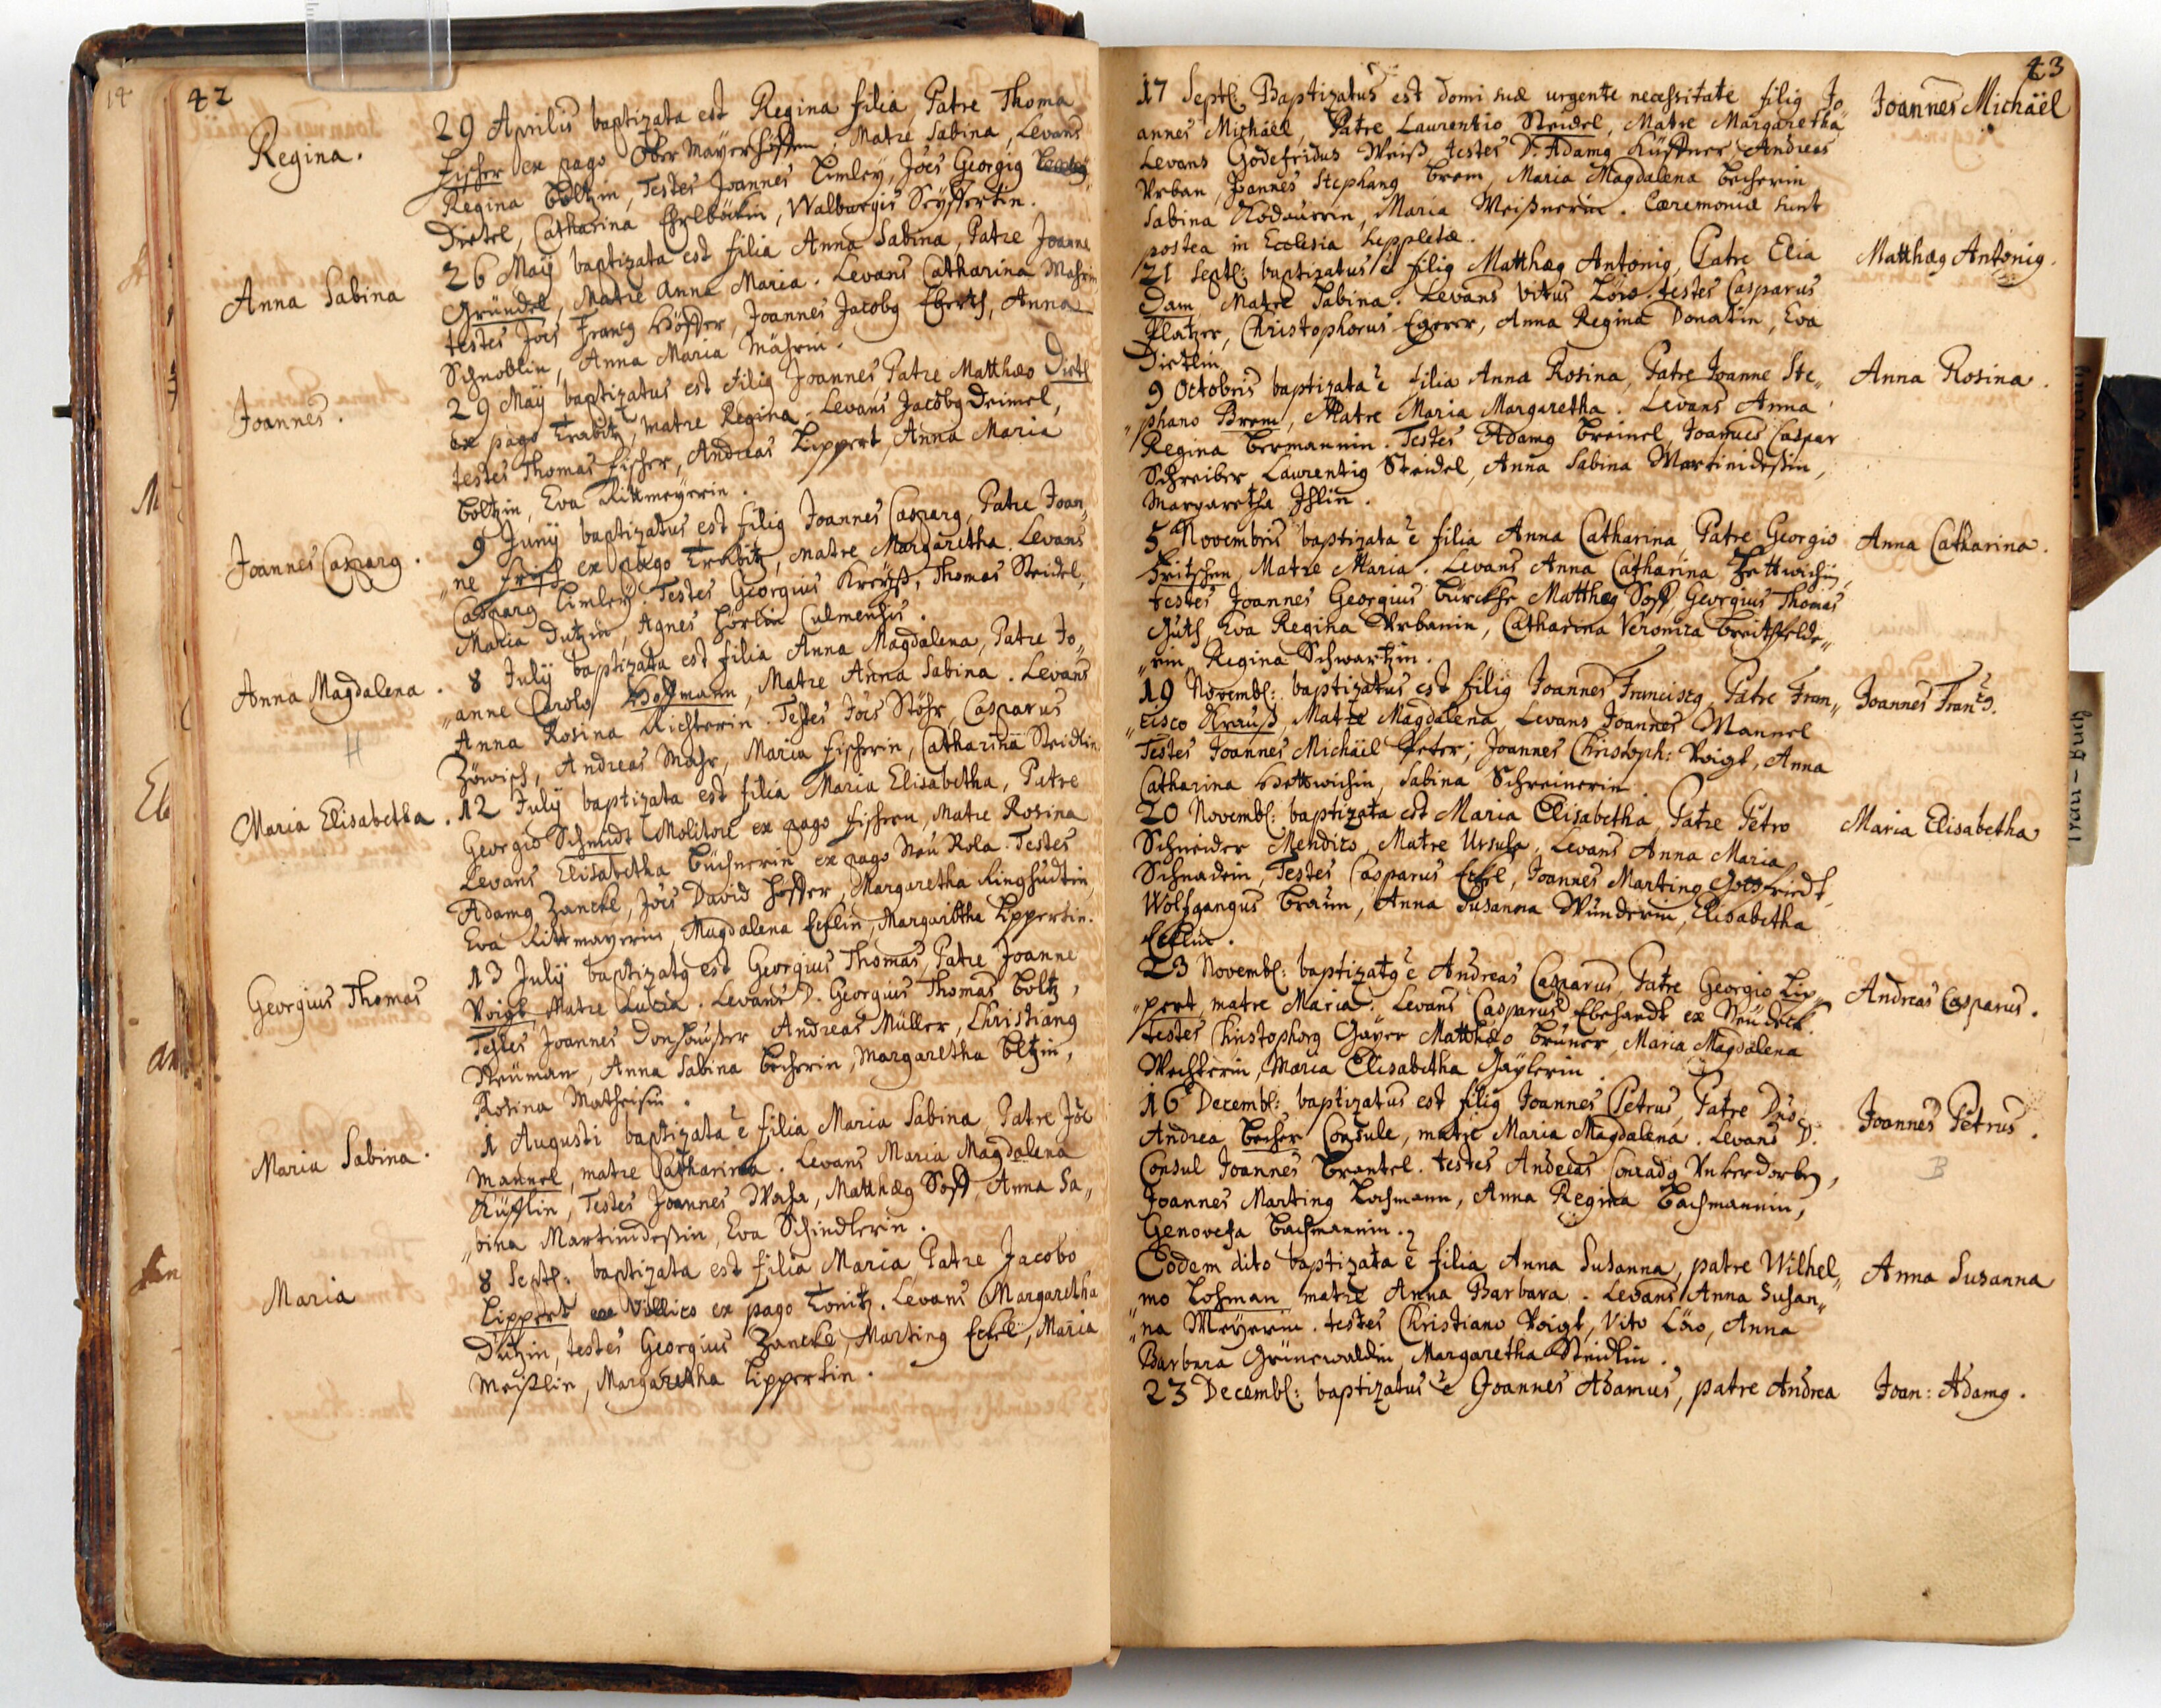 42
Regina.
29 Aprilis baptizata est Regina filia, Patre Thoma
Fischer ex pago Ober Mayerhöffen, Matre Sabina, Levans
Regina Böltzin, Testes Joannes Limley, Joēs Georgig
Dietel, Catharina, Walburgis Seyffertin.
Anna Sabina
26 Maÿ baptizata est filia Anna Sabina, Patre Joanne
Gründel, Matre Anna Maria. Levans Catharina Mahrin
testes Joēs Francg Höffer, Joannes Jacobg Eberth, Anna
Schnoblin, Anna Maria Mährin.
Joannes.
29 Maÿ baptizatus est filig Joannes Patre Matthæo Dietl
ex pago Trabitz, matre Regina. Levans Jacobg Deimel,
testes Thomas Fischer, Andreas Lippert, Anna Maria
Boltzin, Eva Rittmeyerin.
Joannes Casparg.
9 Junÿ baptizatus est filig Joannes Casparg, Patre Joan„
„ne Frisch ex pago Trabitz, Matre Margaretha. Levans
Casparg Limley. Testes Georgius Kreyß, Thomas Steidel,
Maria Dutzin, Agnes Hörlin Culmensis.
Anna Magdalena.
8 Julÿ baptizata est filia Anna Magdalena, Patre Jo„
„anne Carolo Hoffmann, Matre Anna Sabina. Levans
Anna Rosina Richterin. Testes Joēs Stöhr, Casparus
H
Zöwisch, Andreas Mahr, Maria Fischerin, Catharina Steidlin
Maria Elisabetha.
12 Julÿ baptizata est filia Maria Elisabetha, Patre
Georgio Schmidt Molitore ex pago Fischern, Matre Rosina
Levans Elisabetha Büchnerin ex pago Neü Rola. Testes
Adamg Zanckl, Joēs David Höffer, Margaretha Ringhüdtin
Eva Rittmayerin, Magdalena Ecklin, Margaretha Lippertin.
Georgius Thomas
13 Julÿ baptizatg est Georgius Thomas, Patre Joanne
Voigt, Matre Lucia. Levans D. Georgius Thomas Boltz,
Testes Joannes Donhaüser Andreas Müller, Christiang
Neüman, Anna Sabina Becherin, Margaretha Beltzin,
Rosina Matheisin.
Maria Sabina.
1 Augusti baptizata ē filia Maria Sabina, Patre Joē
Mannel, matre Catharina. Levans Maria Magdalena
Küfflin, Testes Joannes Wasa, Matthæg Soff, Anna Sa„
„bina Martinideßin, Eva Schindlerin.
Maria
8 Septl: baptizata est filia Maria Patre Jacobo
Lippert Villico ex pago Tonitz. Levans Margaretha
Dutzin, testes Georgius Zanckl, Marting Eckl, Maria
Meißlin, Margaretha Lippertin.
43
17 Septl: Baptizatus est domi suæ urgente necessitate filig Jo„
Joannes Michäel
annes Michäel, Patre Laurentio Steidel, Matre Margaretha
Levans Godefridus Weiß testes D. Adamg Küffner, Andreas
Urban, Joannes Stephang Brem, Maria Magdalena Becherin
Sabina Kodaurin, Maria Meißnerin. Cæremoniæ sunt
postea in Ecclesia suppletæ.
21 Septl: baptizatus ē filig Matthæg Antonig, Patre Elia
Matthæg Antonig.
Dam Matre Sabina. Levans Vitus Löw. testes Casparus
Platzer, Christophorus Egerer, Anna Regina Donatin, Eva
Dietlin
9 Octobris baptizata ē filia Anna Rosina, Patre Joanne Ste„
Anna Rosina.
„phano Brem, Matre Maria Margaretha. Levans Anna
Regina Bermannin. Testes Adamg Breinel, Joannes Caspar
Schreiber, Laurentig Steidel, Anna Sabina Martinideßin,
Margaretha Ihlin.
5 Novembris baptizata ē filia Anna Catharina Patre Georgio
Anna Catharina.
Fritschen, Matre Maria. Levans Anna Catharina Hettwichin,
testes Joannes Georgius Matthæg Soff, Georgius Thomas
Güth, Eva Regina Urbanin, Catharina Veronica Breithfelde„
„rin, Regina Schwartzin.
19 Novembl: baptizatus est filig Joannes Franciscg, Patre Fran„
Joannes Francg.
„cisco Krauß, Matre Magdalena, Levans Joannes Mannel
Testes Joannes Michäel Peter; Joannes Christoph: Voigt, Anna
Catharina Hettwichin, Sabina Schreinerin.
20 Novembl: baptizata est Maria Elisabetha, Patre Petro
Maria Elisabetha
Schneider Mendico, Matre Ursula, Levans Anna Maria
Schnadin, Testes Casparus Eckl, Joannes Marting Gottfriedt,
Wolfgangus Braun, Anna Susanna Wunderin, Elisabetha
Ecklin.
23 Novembl: baptizatg ē Andreas Casparus, Patre Georgio Lip„
Andreas Casparus.
„pert, matre Maria. Levans Casparus Ebehardt ex Neüdeck.
testes Christophorg Gayer Matthæo Brüner, Maria Magdalena
Wechterin, Maria Elisabetha Gaÿlerin.
16 Decembl: baptizatus est filig Joannes Petrus, Patre Dno
Joannes Petrus.
Andrea Becher Consule, matre Maria Magdalena. Levans D.
B
Consul Joannes Brentel. testes Andreas Conradg Unkerdorben,
Joannes Marting Lochmann, Anna Regina Bachmannin,
Genovefa Bachmannin.
Eodem dito baptizata ē filia Anna Susanna, patre Wilhel„
Anna Susanna
mo Lohman matre Anna Barbara. Levans Anna Susan„
„na Meyerin. testes Christiano Voigt, Vito Löw, Anna
Barbara Grünewaldin, Margaretha Steidlin.
23 Decembl: baptizatus ē Joannes Adamus, patre Andrea
Joan: Adamg.